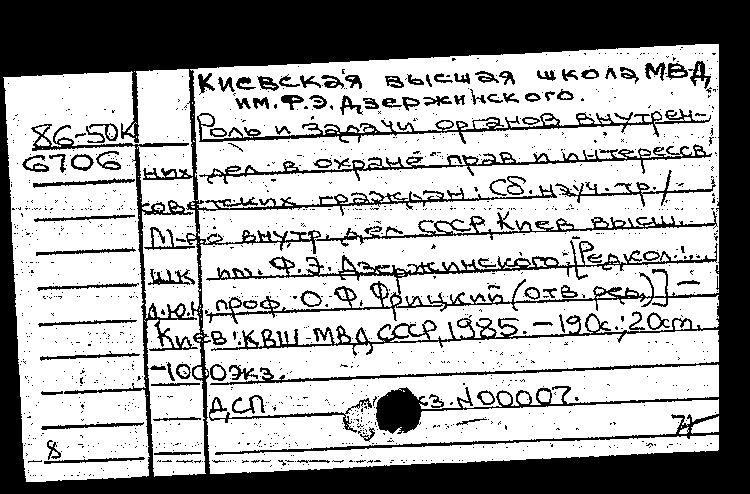 Киевская высшая школа МВД
им. Ф.Э. Дзержинского.
86-50К
6706
Роль и задачи органов внутрен-
них дел в охране прав и интересов
советских граждан: Сб. науч. тр. /
М-во внутр. дел СССР, Киев. высш.
шк. им. Ф.Э. Дзержинского; [Редкол.:...
д.ю.н., проф. О.Ф. Фрицкий (отв. ред.)] -
Киев: КВШ МВД СССР, 1985. - 190с.; 20см.
-1000экз.
ДСП. кз. N00007.
8